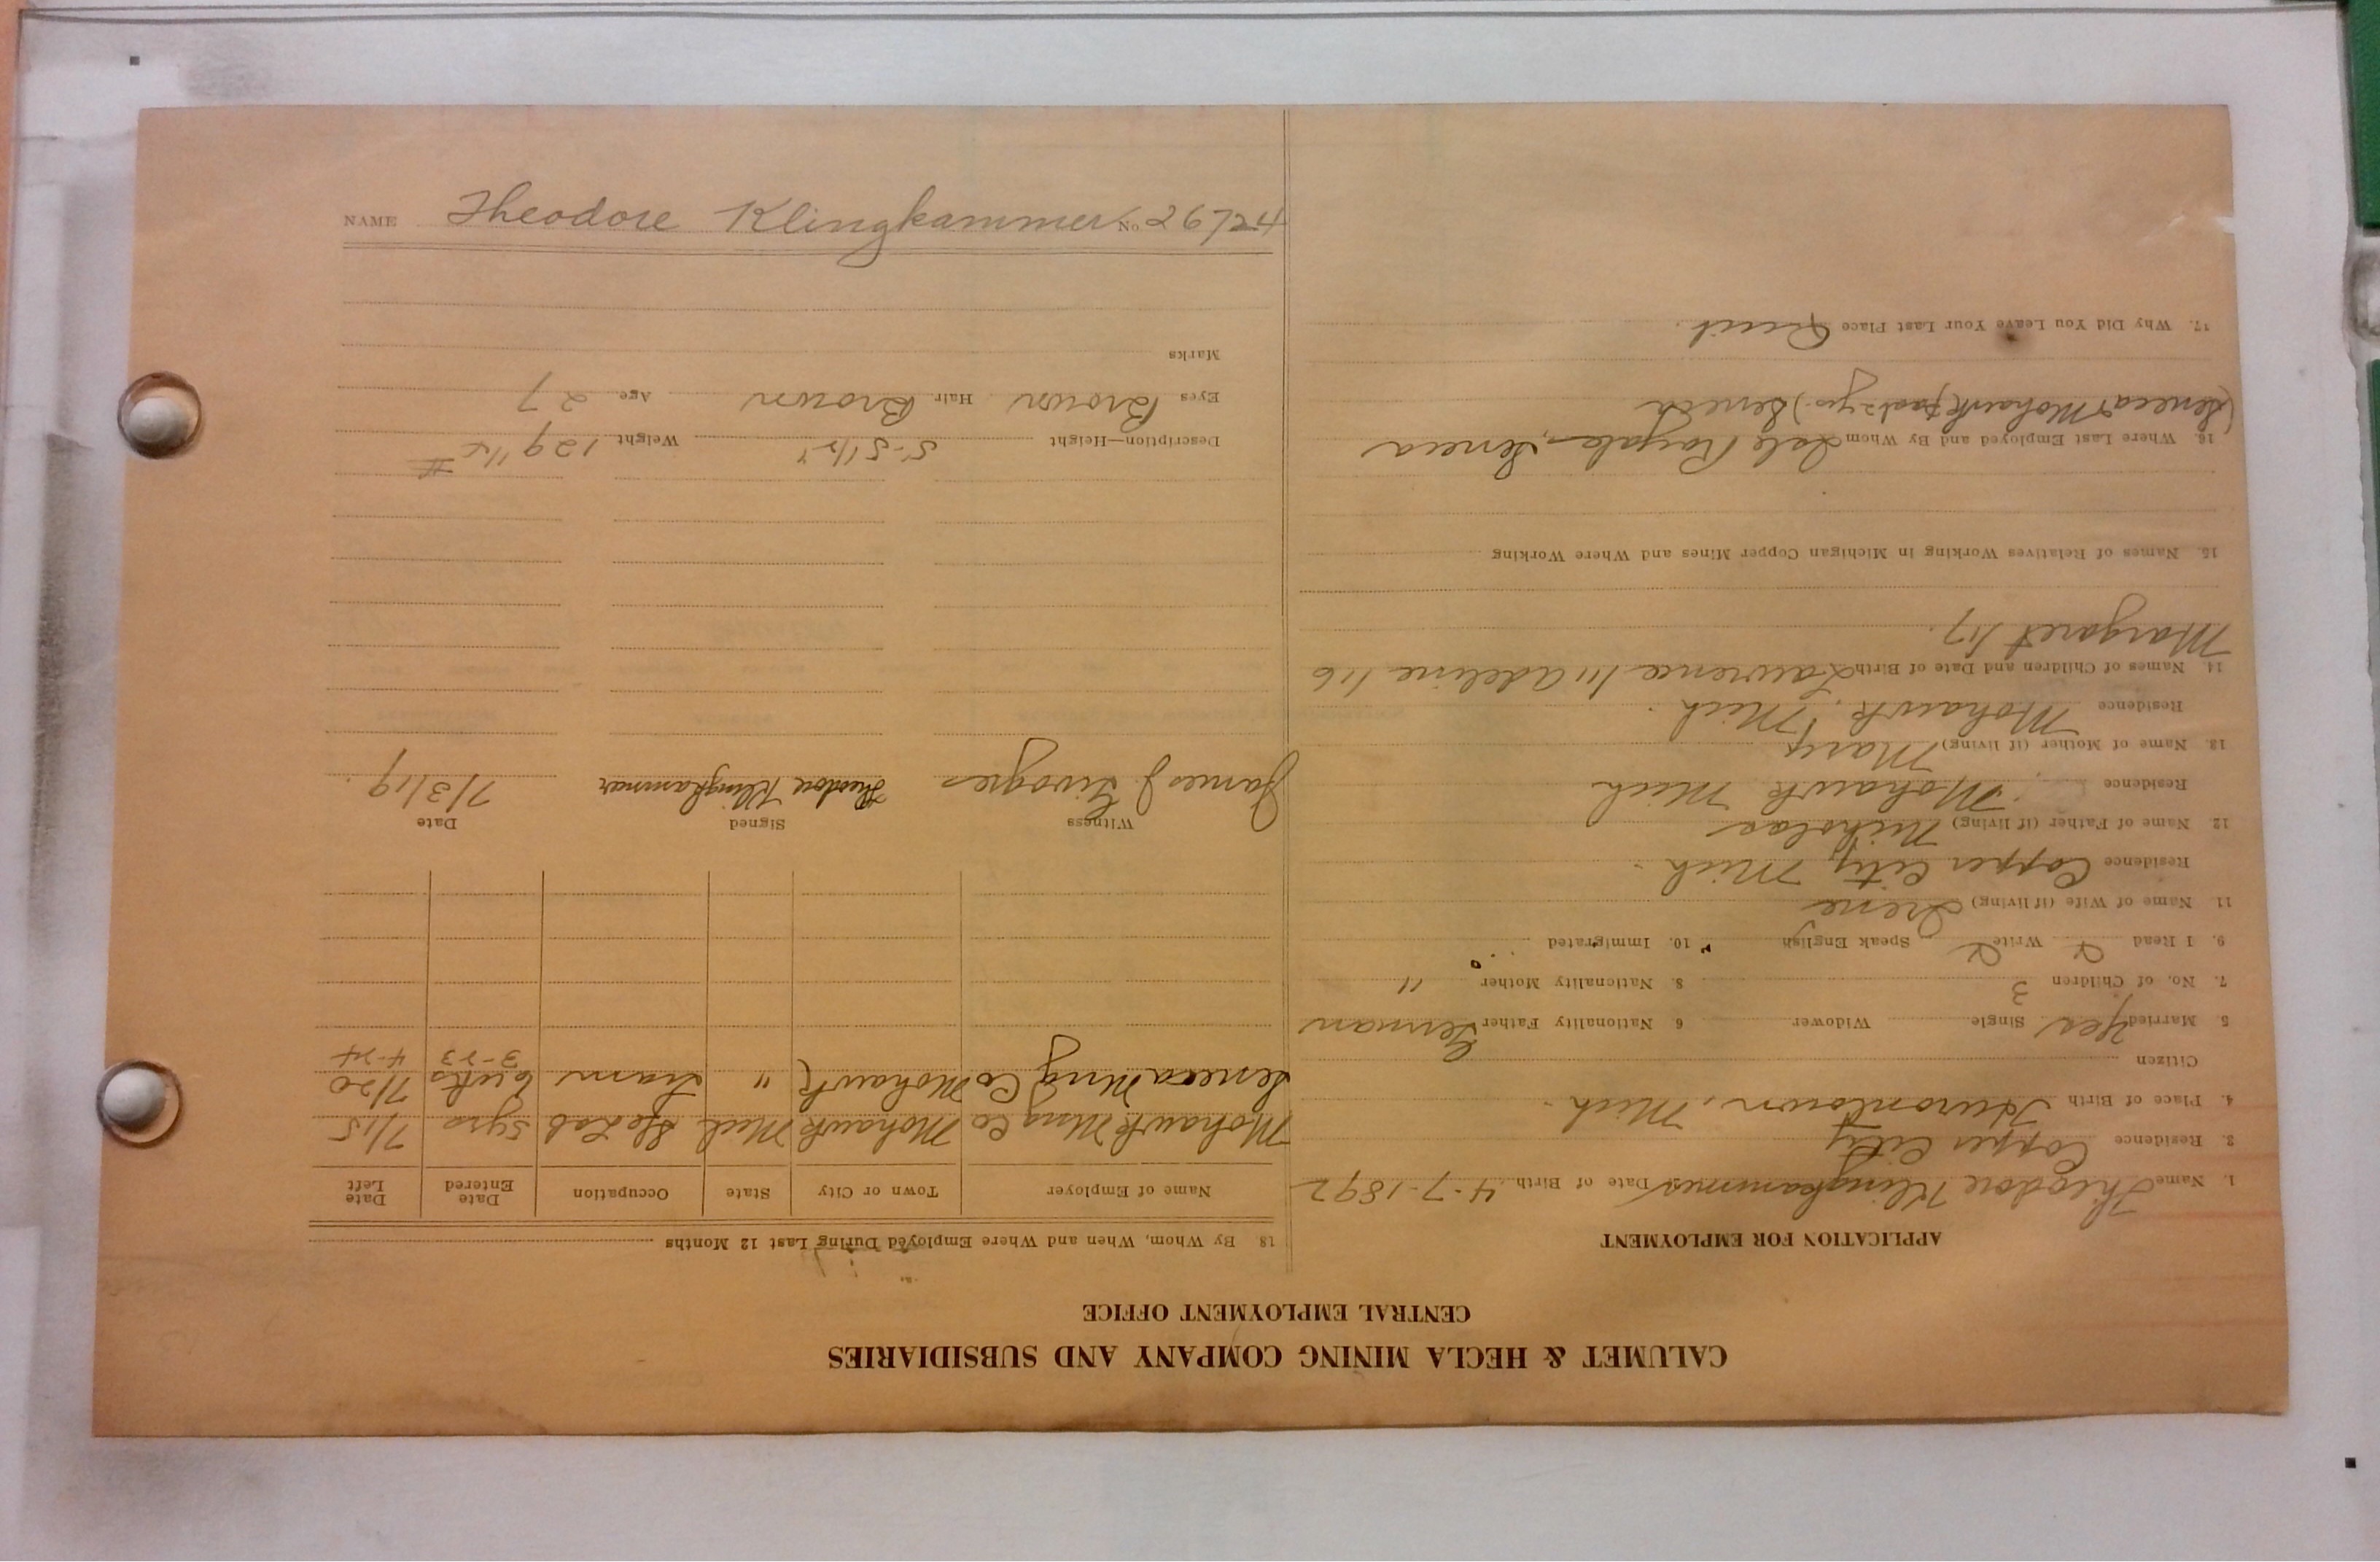 CALUMET & HECLA MINING COMPANY AND SUBSIDIARIES
CENTRAL EMPLOYMENT OFFICE
APPLICATION FOR EMPLOYMENT
1. Name Theodore Klingkammer Date of Birth 4-7-1892
2. Residence Copper City
4. Place of Birth Hurontown, Mich.
Citizen
5 Married Yes Single Widower 6 Nationality Father German
7. No. of Children 3 8. Nationality Mother "
9. I Read Write Speak English " 10. Immigrated
11. Name of Wife (if living) Irene
Residence Copper City Mich.
12 Name of Father (if living) Nicholas
Residence Mohawk Mich
13. Name of Mother (if living) Mary
Residence Mohawk, Mich.
14. Names of Children and Date of Birth Lawrence 1/11 Adeline 1/6
Margaret 1/17.
15. Names of Relatives Working in Michigan Copper Mines and Where Working
16. Where Last Employed and By Whom Isle Royale, Seneca
(Seneca & Mohawk past 2 yrs.) Seneca
17. Why Did You Leave Your Last Place Quit.
18 By Whom, When and Where Employed During Last 12 Months
Name of Employer Town or City State Occupation Date Entered Date Left
Mohawk Mng Co Mohawk Mich 5yrs 7/15
Seneca Mng Co Mohawk " Tram 6 wks 7/20
3-23 4-24
Witness Signed Date
James J Theodore Klingkammer 7/3/19.
Description—Height 5'-5 1/2" Weight 129 1/2 #
Eyes Brown Hair Brown Age 27
Marks
NAME Theodore Klingkammer No 26724